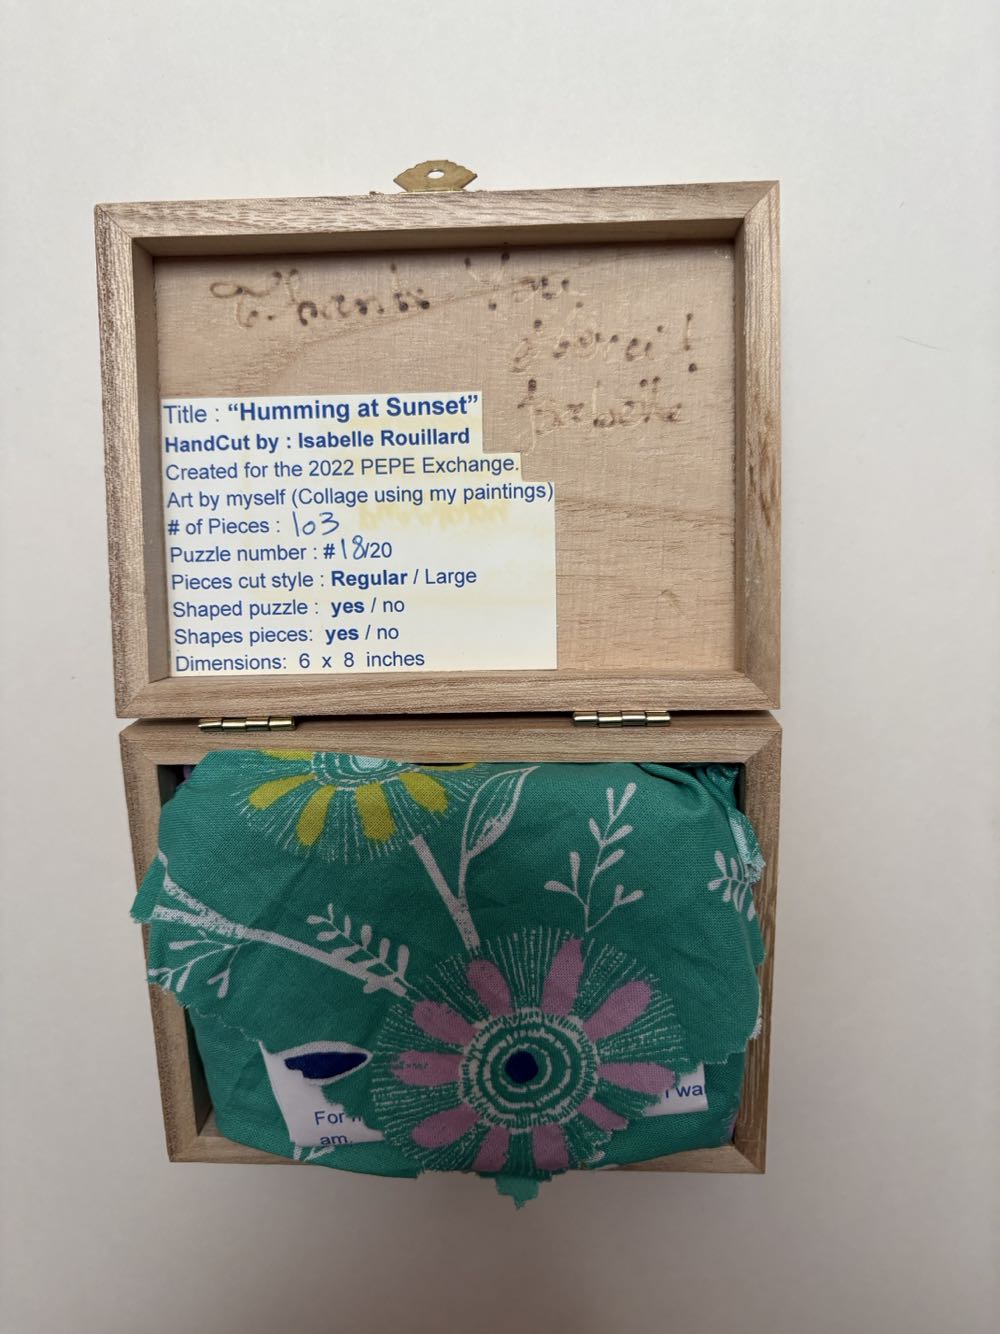 Thank You
Merci!
Isabelle
Title : “Humming at Sunset”
HandCut by : Isabelle Rouillard
Created for the 2022 PEPE Exchange.
Art by myself (Collage using my paintings)
# of Pieces : 103
Puzzle number : #18/20
Pieces cut style : Regular / Large
Shaped puzzle : yes / no
Shapes pieces: yes / no
Dimensions: 6 x 8 inches
For
am,